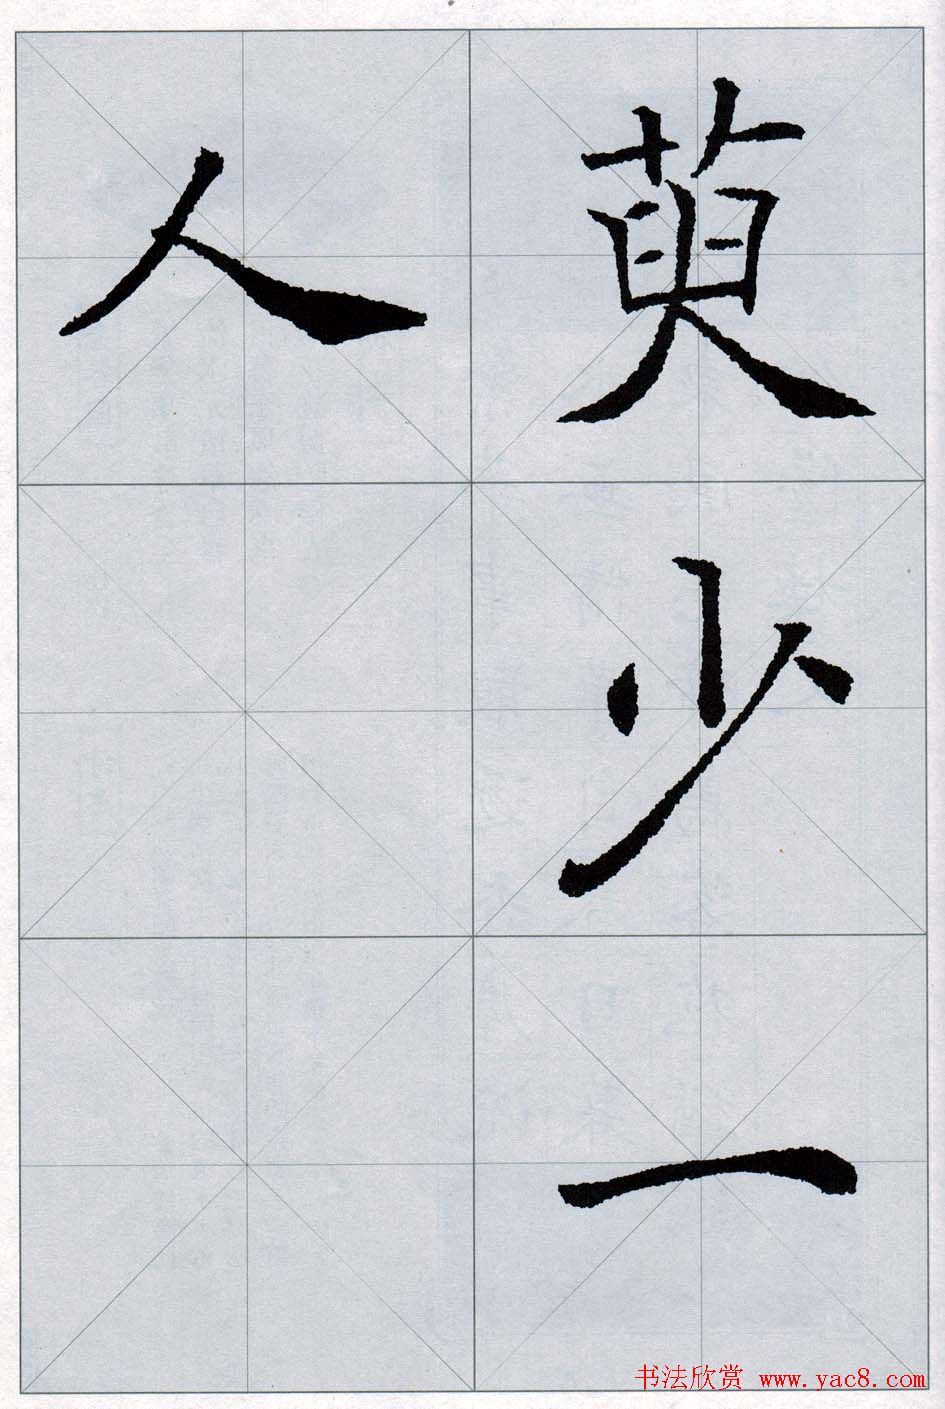 萸少一
人
书法欣赏 www.yac8.com